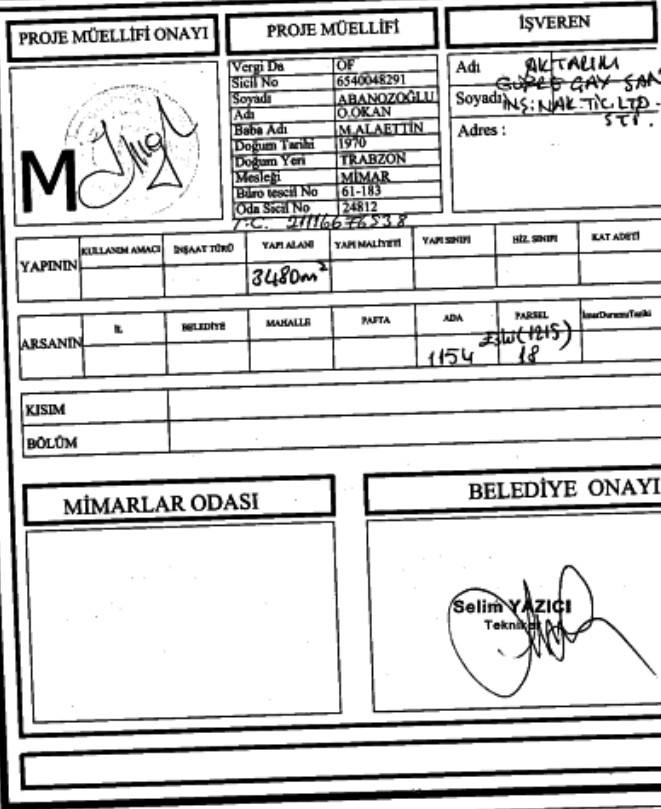 PROJE MÜELLİFİ ONAYI
M
PROJE MÜELLİFİ
Vergi Da OF
Sicil No 6540048291
Soyadı ABANOZOĞLU
Adı O.OKAN
Baba Adı M.ALAETTİN
Doğum Tarihi 1970
Doğum Yeri TRABZON
Mesleği MİMAR
Büro tescil No 61-183
Oda Sicil No 24812
T.C. 21116676538
İŞVEREN
Adı
Soyadı
GÜBRE ÇAY SAN
İNŞ. NAK. TİC. LTD.
ŞTİ.
Adres :
YAPININ
KULLANIM AMACI İNŞAAT TÜRÜ YAPI ALANI YAPI MALİYETİ YAPI SINIFI HİZ. SINIFI KAT ADETİ
3480m²
ARSANIN
İL BELEDİYE MAHALLE PAFTA ADA PARSEL İmarDurumuTarihi
Eski (1215)
1154 18
KISIM
BÖLÜM
MİMARLAR ODASI
BELEDİYE ONAYI
Selim YAZICI
Tekniker